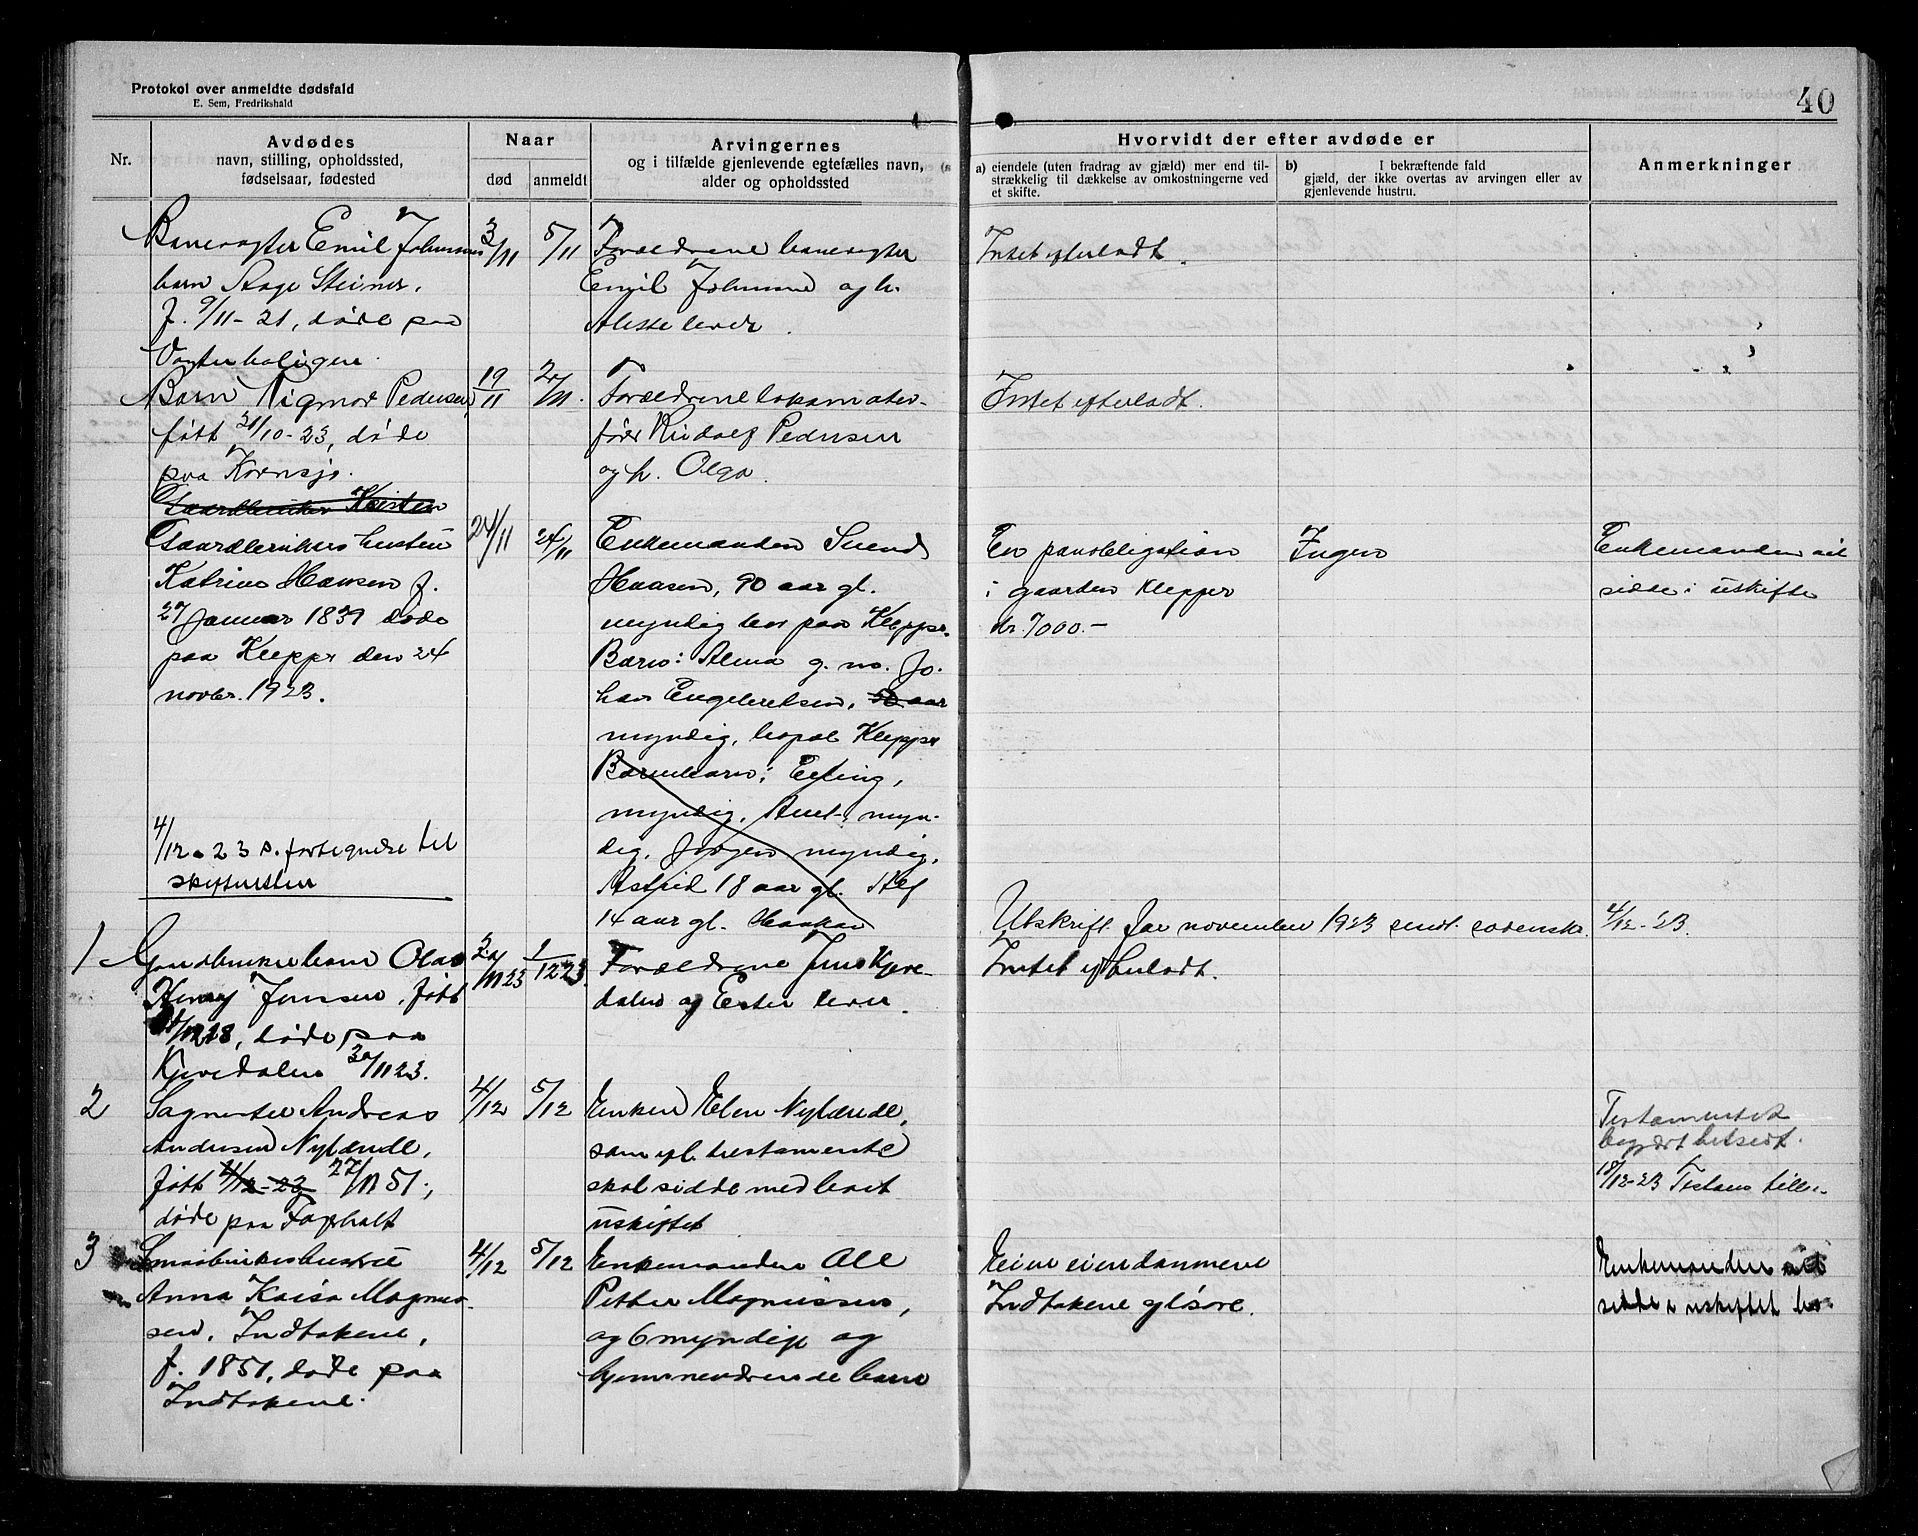 Protokol over anmeldte dødsfald
E. Sem, Fredrikshald
40
Nr.
Avdødes
navn, stilling, opholdssted,
fødselsaar, fødested
Naar
død
anmeldt
Arvingernes
og i tilfælde gjenlevende egtefælles navn,
alder og opholdssted
Hvorvidt der efter avdøde er
a) eiendele (uten fradrag av gjæld) mer end til-
strækkelig til dækkelse av omkostningerne ved
et skifte.
b) I bekræftende fald
gjæld, der ikke overtas av arvingen eller av
gjenlevende hustru.
Anmerkninger
Banevogter Emil Johansens
barn Aage Steiner,
f. 9/11-21, døde paa
Vogterboligen.
3/11
5/11
Forældrene banevogter
Emil Johansen og h.
lever.
Intet efterladt.
Barn Rigmor Pedersen,
født 31/10-23, døde
paa Kornsjø.
19/11
Forældrene lokomotiv-
fører Rudolf Pedersen
og h. Olga.
Intet efterladt.
Gaardbruker
Gaardbrukers hustru
Katrine Hansen f.
27 Januar 1839 døde
paa Klepper den 24
novbr. 1923.
24/11
26/11
Enkemanden Svend
Hansen, 90 aar gl.
myndig bor paa Klepper.
Barn: Alma g. m. Jo-
han Engebretsen, 50 aar
myndig, bopæl Klepper
Barnebarn: Erling,
myndig, myn-
dig, Jørgen myndig,
Astrid 18 aar gl. Alf
14 aar gl. Haakon
En panobligation
i gaarden Klepper
kr. 7000.-
Ingen
Enkemanden vil
sidde i uskifte
4/12-23 s. fortegnelse til
skifteretten
Utskrift for november 1923 sendt sorensk. 4/12-23.
1
Gaardbrukerbarn Olav
Henry Jensen, født
døde paa
Kjerredalen 30/11 23.
30/11 23
1/12 23.
Forældrene Jens Kjerre-
dalen og Ester lever.
Intet efterladt.
2
Sagmester Andreas
Andersen Nylænde,
født 4/12-23 27/11 51,
døde paa
4/12
5/12
Enken Elen Nylænde,
som ifl. testamente
skal sidde med boet
uskiftet
Testamentet
begjært
18/12-23
3
Smaabrukerhustru
Anna Kaisa Magnus-
sen, Indtakene,
f. 1851, døde paa
Indtakene.
4/12
5/12
Enkemanden Ole
Petter Magnussen,
og 6 myndige og
hjemmeværende barn
Eier eiendommene
Indtakene og løsøre.
Enkemanden vil
sidde i uskiftet bo